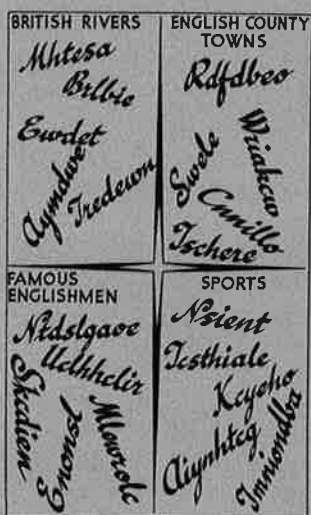 BRITISH RIVERS
Mhtesa
Brlbie
Ewdet
Aymdwe
Tredewn
ENGLISH COUNTY
TOWNS
Rdfdbeo
Wuakcw
Swele
Cnnillo
Tschere
FAMOUS
ENGLISHMEN
Ntdslgaoe
Uclhhclir
Skcdien
Mlowrolc
SPORTS
Nsient
Tcsthiale
Kcyeho
Aiynhtcg
Imniondba